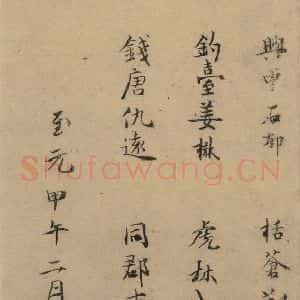 栝蒼
釣臺姜楙 虎林
錢唐仇遠 同郡
至元甲午二月
Shufawang.CN